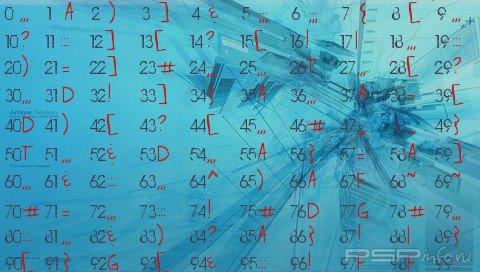 0 ,,, 1 A 2 ) 3 ] 4 ε 5 ,,, 6 ::: 7 { 8 [ 9 ,,,
10 ? 11 ::: 12 ] 13 [ 14 ? 15 [ 16 ! 17 ! 18 ,,, 19 :::
20 ) 21 = 22 ] 23 # 24 ,, 25 ,,, 26 T 27 ,,, 28 [ 29 ?
30 ,,, 31 D 32 ! 33 ] 34 { 35 A 36 ,,, 37 A 38 = 39 [
Artique Designer
40 D 41 ) 42 [ 43 ? 44 [ 45 ,,, 46 # 47 ,,, 48 ,,, 49 }
50 T 51 ,,, 52 ε 53 D 54 ,,, 55 A 56 } 57 = 58 A 59 ]
60 ,,, 61 ε 62 ::: 63 ,,, 64 ^ 65 ) 66 A 67 F 68 ~ 69 ~
70 # 71 = 72 ,,, 73 ::: 74 ! 75 # 76 D 77 G 78 # 79 ,,,
80 ::: 81 ,,, 82 ε 83 ) 84 ? 85 A 86 } 87 ! 88 ! 89 {
90 [ 91 } 92 G 93 [ 94 ε 95 ::: 96 ! 97 F 98 F 99
PSPinfo.ru